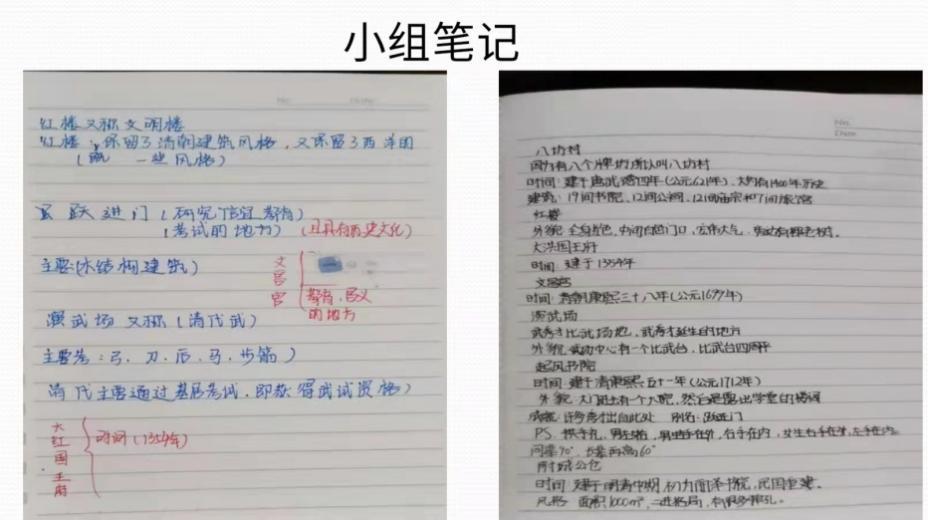 小组笔记
红楼又称文明楼
红楼：保留了清朝建筑风格，又保留了西洋国
一些风格）
跃进门（研究信宜教育）
（考试的地方）（且具有历史文化）
主要（木结构建筑）
文昌宫
教育，昌文
的地方
演武场 又称（清代武）
主要考：弓、刀、石、马、步箭）
清代主要通过基层考试，即获得武试资格）
大红国王府
时间（1354年）
No.
Date
八坊村
因为有八个牌坊所以叫八坊村
时间：建于唐武德四年（公元621年），大约有1400年历史
建筑：19间书院、12间公祠、12间庙宗和7间旅馆
红楼
外貌：全身红色，中间白色门口，宏伟大气，旁边有
大洪国王府
时间：建于1354年
文昌宫
时间：清朝康熙三十八年（公元1699年）
演武场
武秀才比武场地，武秀才诞生的地方
外貌：武场中心有一个比武台，比武台四周
起凤书院
时间：建于清康熙五十一年（公元1712年）
外貌：大门进去有一个大院，然后是露出学堂的楼阁
成就：许多秀才出自此处 别名：跃进门
PS：拱手礼，男左右，男左手在外，右手在内，女生右手在外，左手在内。
问善90°，长辈两高60°
附城公仓
时间：建于明清中期，初为 书院，民国重建。
风格：面积1000m²，二进格局，有很多